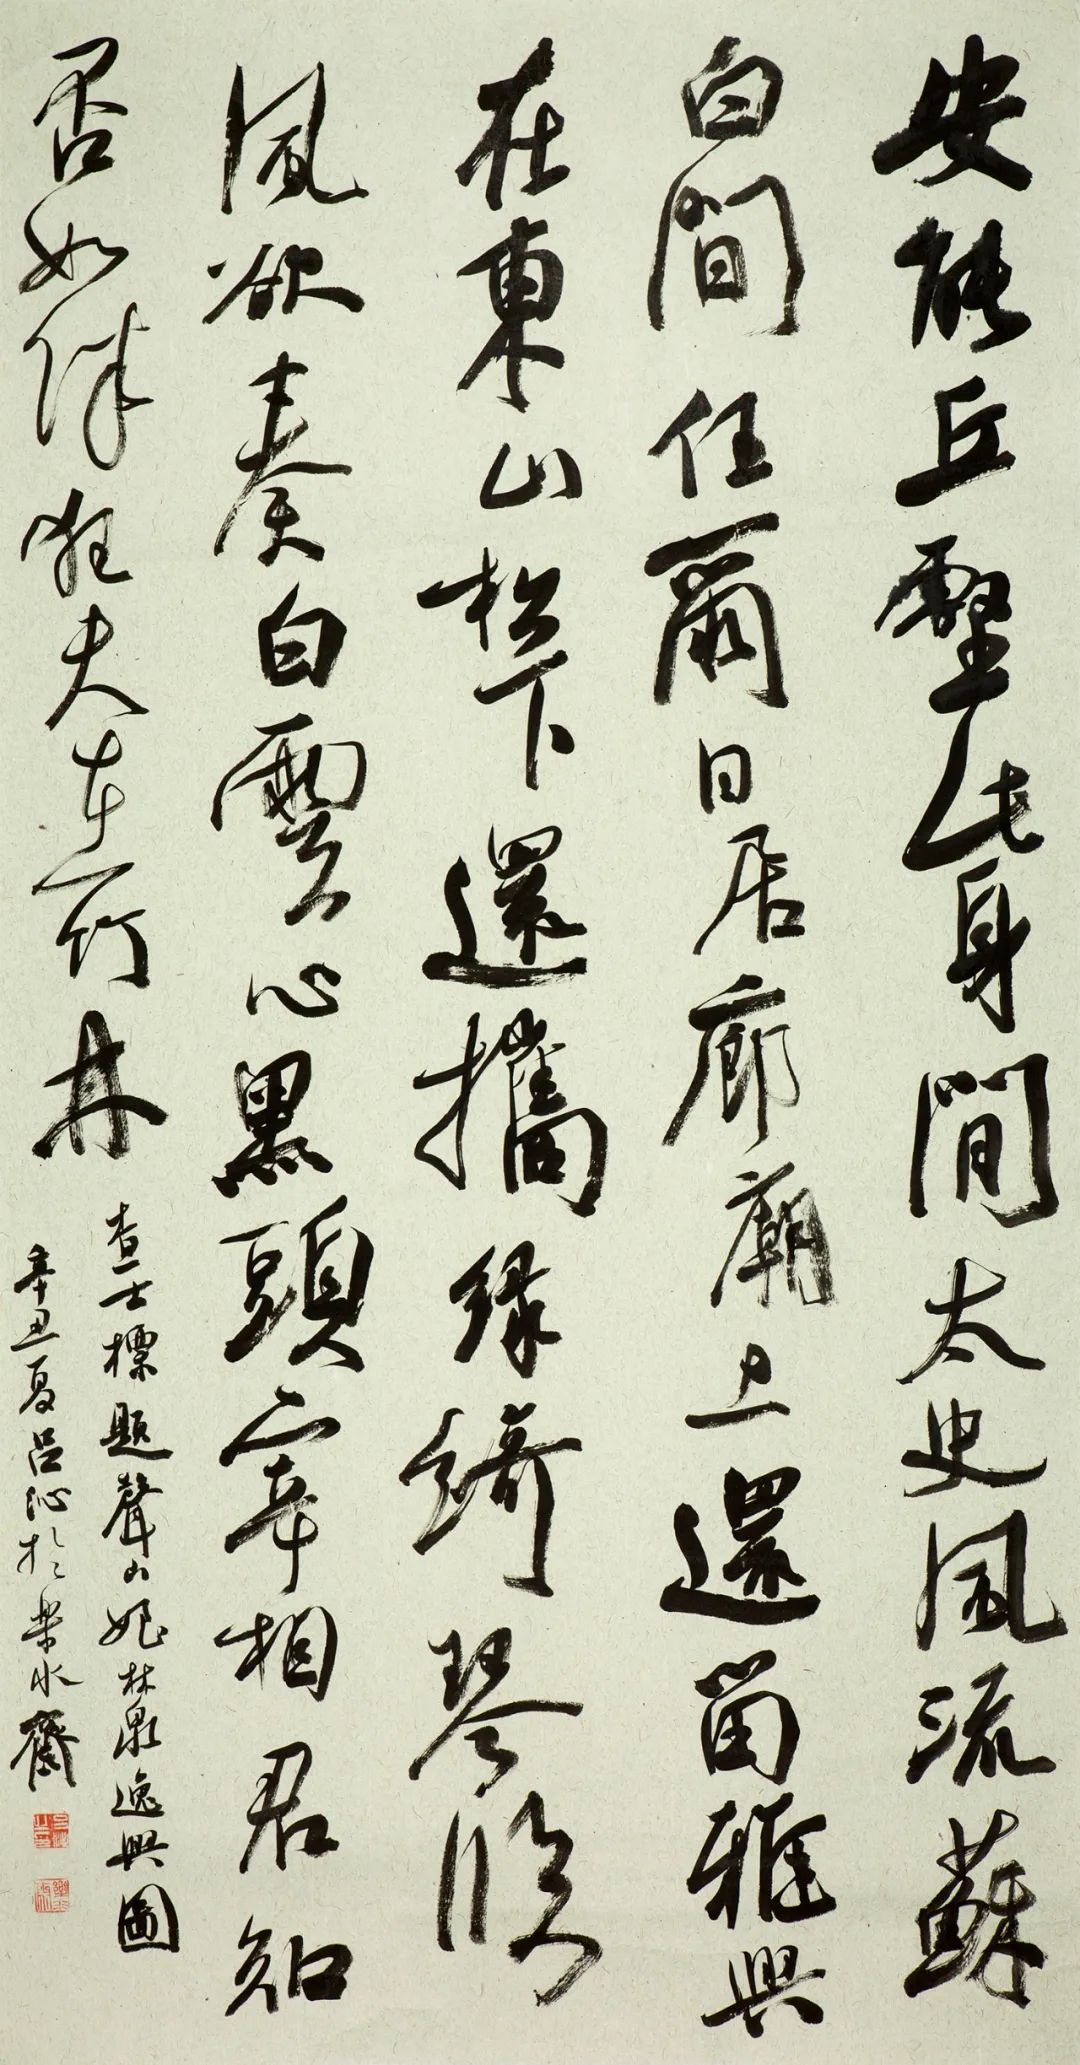 安能丘壑此身閒太史風流蘇
白間任爾日居廊廟上還留雅興
在東山松下還攜綠綺琴臨
風欲奏白雲心黑頭宰相君知
否如伴狂夫在竹林
查士標題聲山姪林泉逸興圖
辛丑夏呂沁於樂水齋